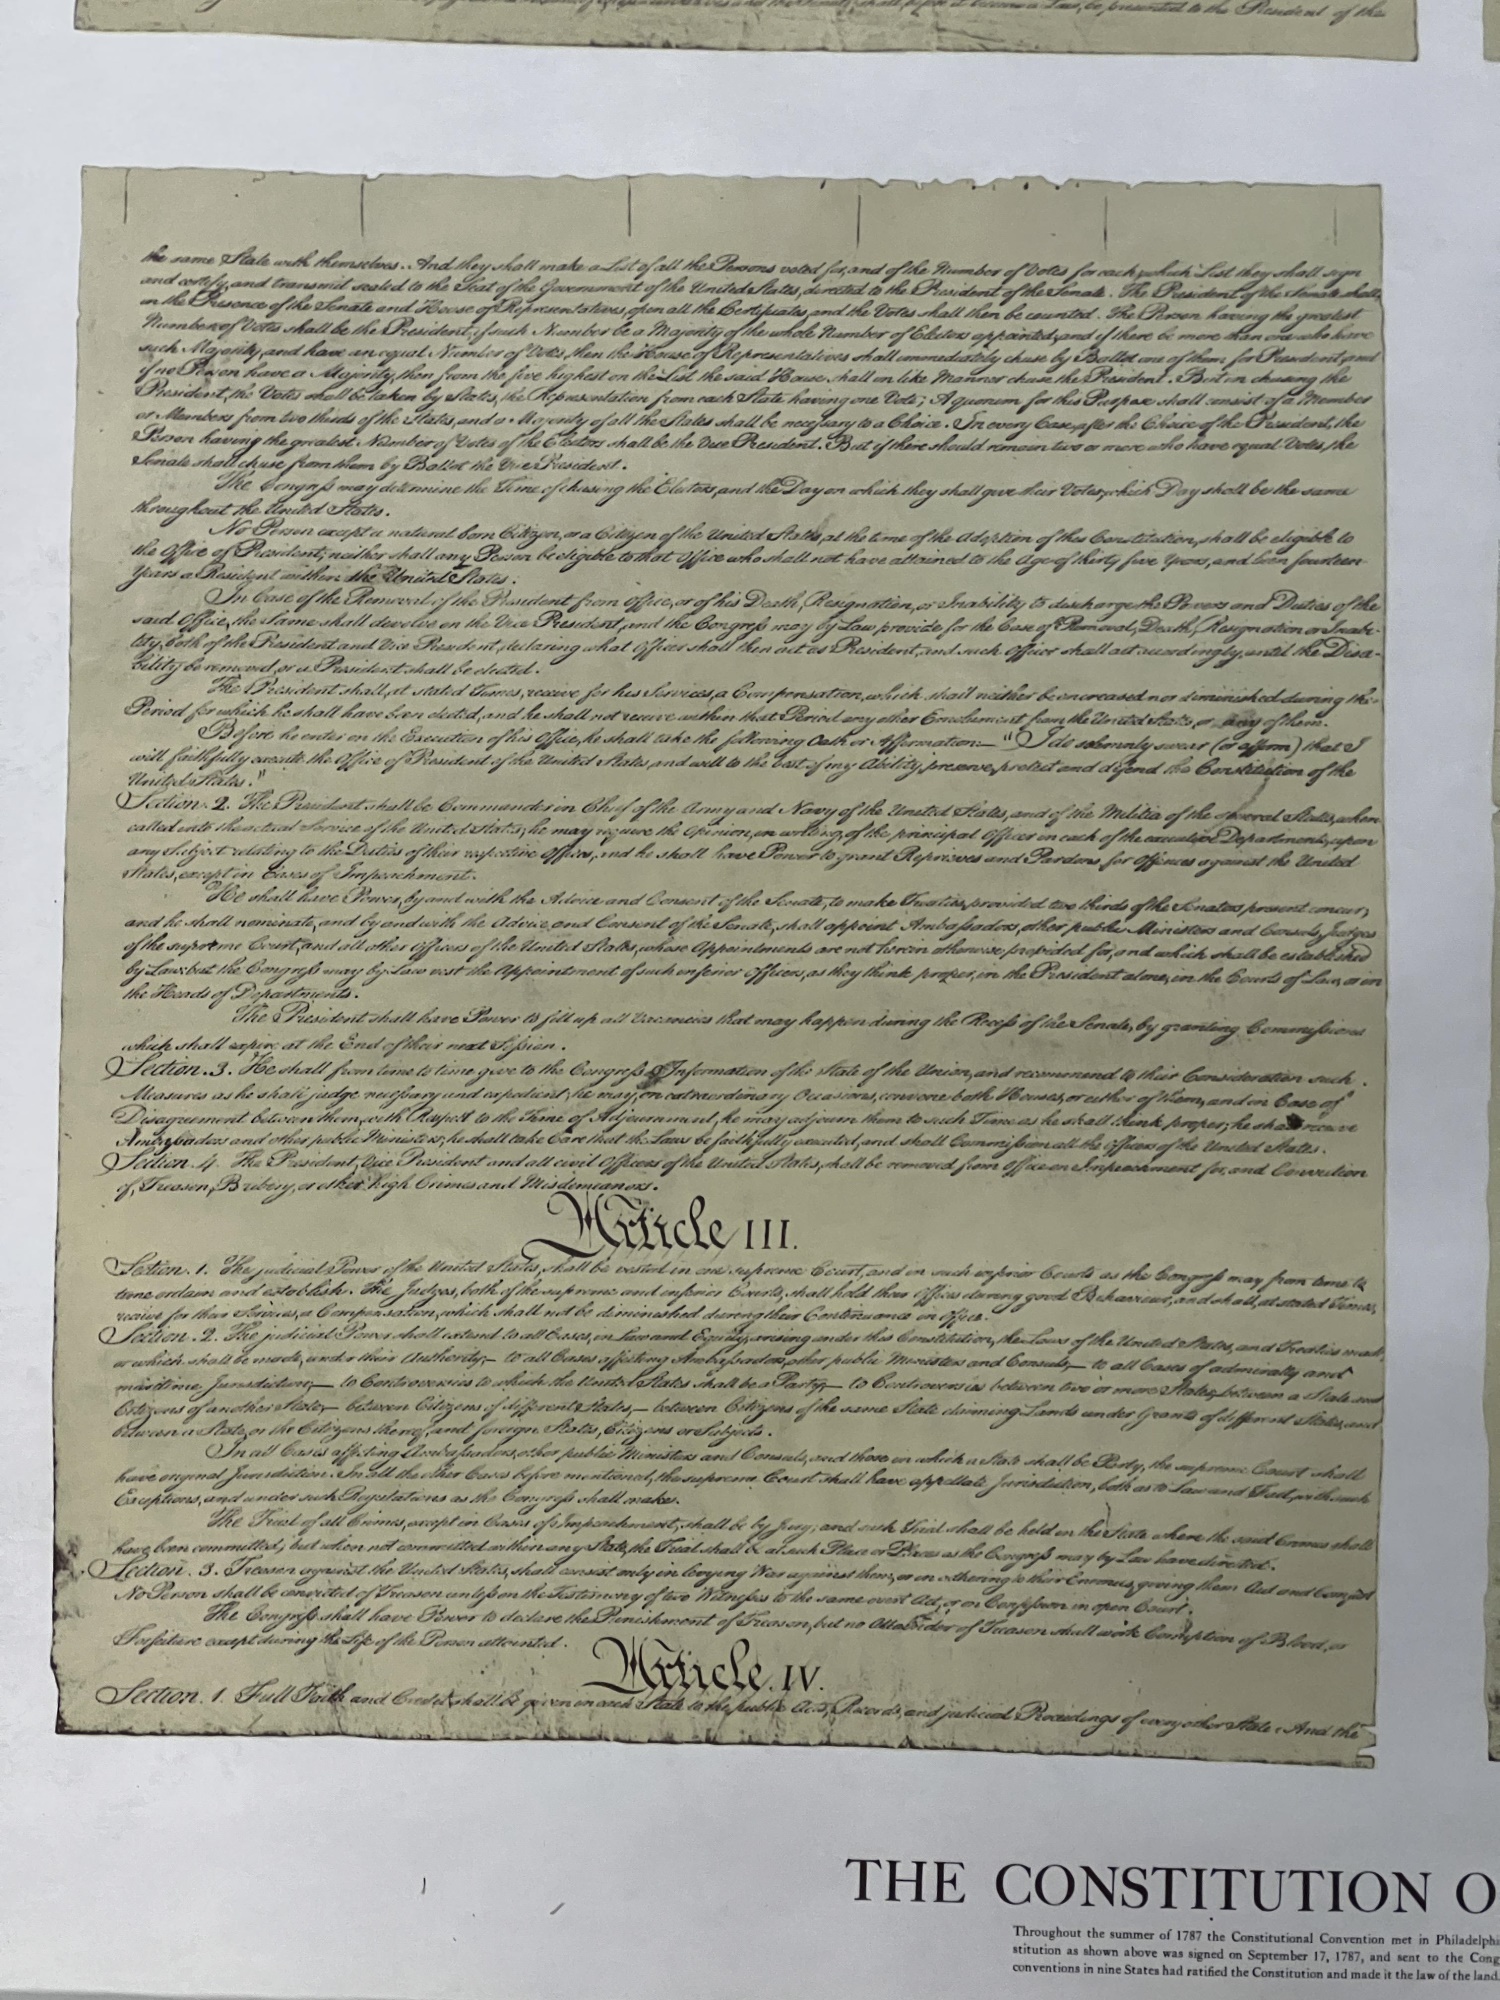 shall, before it become a Law, be presented to the President of the
the same State with themselves. And they shall make a List of all the Persons voted for, and of the Number of Votes for each; which List they shall sign
and certify, and transmit sealed to the Seat of the Government of the United States, directed to the President of the Senate. The President of the Senate shall,
in the Presence of the Senate and House of Representatives, open all the Certificates, and the Votes shall then be counted. The Person having the greatest
Number of Votes shall be the President, if such Number be a Majority of the whole Number of Electors appointed; and if there be more than one who have
such Majority, and have an equal Number of Votes, then the House of Representatives shall immediately chuse by Ballot one of them for President; and
if no Person have a Majority, then from the five highest on the List the said House shall in like Manner chuse the President. But in chusing the
President, the Votes shall be taken by States, the Representation from each State having one Vote; A quorum for this Purpose shall consist of a Member
or Members from two thirds of the States, and a Majority of all the States shall be necessary to a Choice. In every Case, after the Choice of the President, the
Person having the greatest Number of Votes of the Electors shall be the Vice President. But if there should remain two or more who have equal Votes, the
Senate shall chuse from them by Ballot the Vice President.
The Congress may determine the Time of chusing the Electors, and the Day on which they shall give their Votes; which Day shall be the same
throughout the United States.
No Person except a natural born Citizen, or a Citizen of the United States, at the time of the Adoption of this Constitution, shall be eligible to
the Office of President; neither shall any Person be eligible to that Office who shall not have attained to the Age of thirty five Years, and been fourteen
Years a Resident within the United States.
In Case of the Removal of the President from Office, or of his Death, Resignation, or Inability to discharge the Powers and Duties of the
said Office, the Same shall devolve on the Vice President, and the Congress may by Law provide for the Case of Removal, Death, Resignation or Inabi-
lity, both of the President and Vice President, declaring what Officer shall then act as President, and such Officer shall act accordingly, until the Disa-
bility be removed, or a President shall be elected.
The President shall, at stated Times, receive for his Services, a Compensation, which shall neither be encreased nor diminished during the
Period for which he shall have been elected, and he shall not receive within that Period any other Emolument from the United States, or any of them.
Before he enter on the Execution of his Office, he shall take the following Oath or Affirmation:— "I do solemnly swear (or affirm) that I
will faithfully execute the Office of President of the United States, and will to the best of my Ability, preserve, protect and defend the Constitution of the
United States."
Section. 2. The President shall be Commander in Chief of the Army and Navy of the United States, and of the Militia of the several States, when
called into the actual Service of the United States; he may require the Opinion, in writing, of the principal Officer in each of the executive Departments, upon
any Subject relating to the Duties of their respective Offices, and he shall have Power to grant Reprieves and Pardons for Offences against the United
States, except in Cases of Impeachment.
He shall have Power, by and with the Advice and Consent of the Senate, to make Treaties, provided two thirds of the Senators present concur;
and he shall nominate, and by and with the Advice and Consent of the Senate, shall appoint Ambassadors, other public Ministers and Consuls, Judges
of the supreme Court, and all other Officers of the United States, whose Appointments are not herein otherwise provided for, and which shall be established
by Law: but the Congress may by Law vest the Appointment of such inferior Officers, as they think proper, in the President alone, in the Courts of Law, or in
the Heads of Departments.
The President shall have Power to fill up all Vacancies that may happen during the Recess of the Senate, by granting Commissions
which shall expire at the End of their next Session.
Section. 3. He shall from time to time give to the Congress Information of the State of the Union, and recommend to their Consideration such
Measures as he shall judge necessary and expedient; he may, on extraordinary Occasions, convene both Houses, or either of them, and in Case of
Disagreement between them, with Respect to the Time of Adjournment, he may adjourn them to such Time as he shall think proper; he shall receive
Ambassadors and other public Ministers; he shall take Care that the Laws be faithfully executed, and shall Commission all the Officers of the United States.
Section. 4. The President, Vice President and all civil Officers of the United States, shall be removed from Office on Impeachment for, and Conviction
of, Treason, Bribery, or other high Crimes and Misdemeanors.
Article III.
Section. 1. The judicial Power of the United States, shall be vested in one supreme Court, and in such inferior Courts as the Congress may from time to
time ordain and establish. The Judges, both of the supreme and inferior Courts, shall hold their Offices during good Behaviour, and shall, at stated Times,
receive for their Services, a Compensation, which shall not be diminished during their Continuance in Office.
Section. 2. The judicial Power shall extend to all Cases, in Law and Equity, arising under this Constitution, the Laws of the United States, and Treaties made,
or which shall be made, under their Authority;— to all Cases affecting Ambassadors, other public Ministers and Consuls;— to all Cases of admiralty and
maritime Jurisdiction;— to Controversies to which the United States shall be a Party;— to Controversies between two or more States;— between a State and
Citizens of another State;— between Citizens of different States,— between Citizens of the same State claiming Lands under Grants of different States, and
between a State, or the Citizens thereof, and foreign States, Citizens or Subjects.
In all Cases affecting Ambassadors, other public Ministers and Consuls, and those in which a State shall be Party, the supreme Court shall
have original Jurisdiction. In all the other Cases before mentioned, the supreme Court shall have appellate Jurisdiction, both as to Law and Fact, with such
Exceptions, and under such Regulations as the Congress shall make.
The Trial of all Crimes, except in Cases of Impeachment, shall be by Jury; and such Trial shall be held in the State where the said Crimes shall
have been committed; but when not committed within any State, the Trial shall be at such Place or Places as the Congress may by Law have directed.
Section. 3. Treason against the United States, shall consist only in levying War against them, or in adhering to their Enemies, giving them Aid and Comfort.
No Person shall be convicted of Treason unless on the Testimony of two Witnesses to the same overt Act, or on Confession in open Court.
The Congress shall have Power to declare the Punishment of Treason, but no Attainder of Treason shall work Corruption of Blood, or
Forfeiture except during the Life of the Person attainted.
Article. IV.
Section. 1. Full Faith and Credit shall be given in each State to the public Acts, Records, and judicial Proceedings of every other State. And the
THE CONSTITUTION O
Throughout the summer of 1787 the Constitutional Convention met in Philadelphi
stitution as shown above was signed on September 17, 1787, and sent to the Cong
conventions in nine States had ratified the Constitution and made it the law of the land.